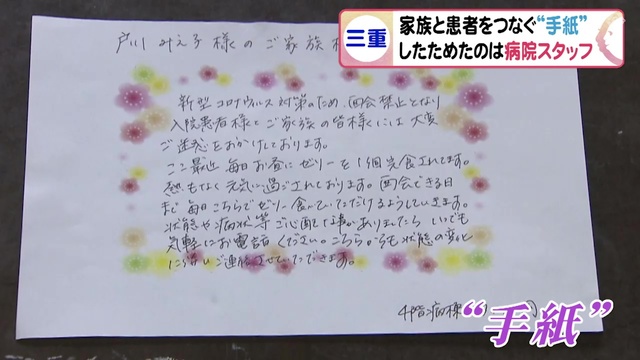 三重
家族と患者をつなぐ“手紙”
したためたのは病院スタッフ
戸川 叶え子様のご家族様
新型コロナウイルス対策のため、面会禁止となり
入院患者様とご家族の皆様には大変
ご迷惑をおかけしております。
ここ最近 毎日お昼にゼリーを1個完食されてます。
熱もなく元気に過ごされております。面会できる日
まで 毎日こちらでゼリー食べていただけるようしていきます。
状態や病状等 ご心配な事がありましたら いつでも
気軽にお電話ください。こちらからも状態の変化
ご連絡させていただきます。
4階病棟
“手紙”